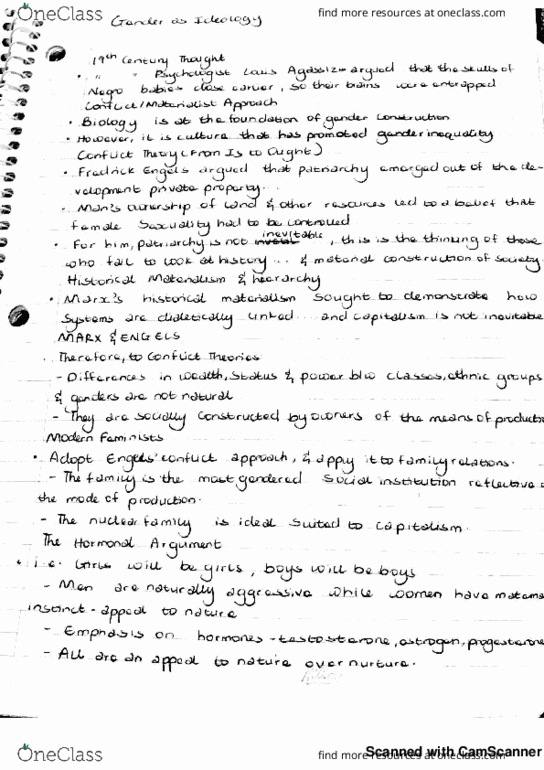 OneClass
find more resources at oneclass.com
Gender as Ideology
19th Century Thought
• " " Psychologist Louis Agassiz - argued that the skulls of
Negro babies close earlier, so their brains were entrapped
Conflict/Materialist Approach
• Biology is at the foundation of gender construction
• However, it is culture that has promoted gender inequality
Conflict Theory (From Is to Ought)
• Fredrick Engels argued that patriarchy emerged out of the de-
velopment private property...
• Man's ownership of land & other resources led to a belief that
female sexuality had to be controlled
• For him, patriarchy is not inevitable, this is the thinking of those
who fail to look at history... & material construction of society
Historical Materialism & hierarchy
• Marx's historical materialism sought to demonstrate how
systems are dialetically linked... and capitalism is not inevitable
MARX & ENGELS
. Therefore, to Conflict Theories
- Differences in wealth, status & power b/w classes, ethnic groups
& genders are not natural
- They are socially constructed by owners of the means of producti
Modern Feminists
• Adopt Engels' conflict approach, & apply it to family relations.
- The family is the most gendered social institution reflective o
the mode of production.
- The nuclear family is ideal suited to capitalism.
The Hormonal Argument
• i.e. Girls will be girls, boys will be boys
- Men are naturally aggressive while women have materna
instinct - appeal to nature
- Emphasis on hormones - testosterone, estrogen, progesterone
- All are an appeal to nature over nurture.
Scanned with CamScanner
OneClass
find more resources at oneclass.com